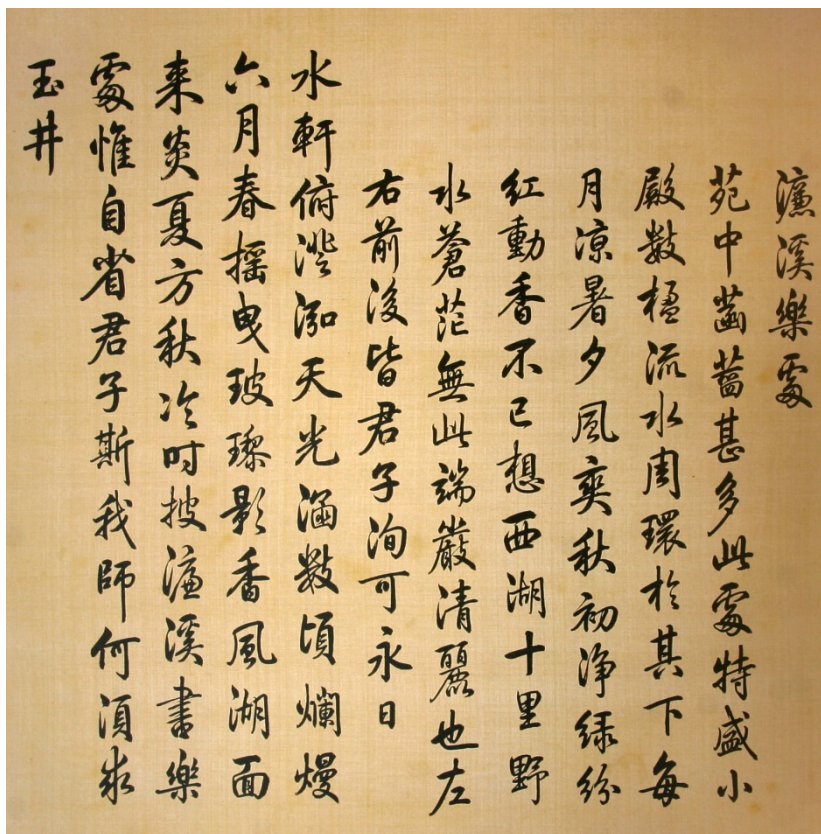 濂溪樂處
苑中菡萏甚多此處特盛小
殿數楹流水周環於其下每
月涼暑夕風爽秋初淨綠紛
紅動香不已想西湖十里野
水蒼茫無此端嚴清麗也左
右前後皆君子洵可永日
水軒俯澄泓天光涵數頃爛熳
六月春搖曳玻瓈影香風湖面
来炎夏方秋冷时披濂溪書樂
處惟自省君子斯我師何須求
玉井